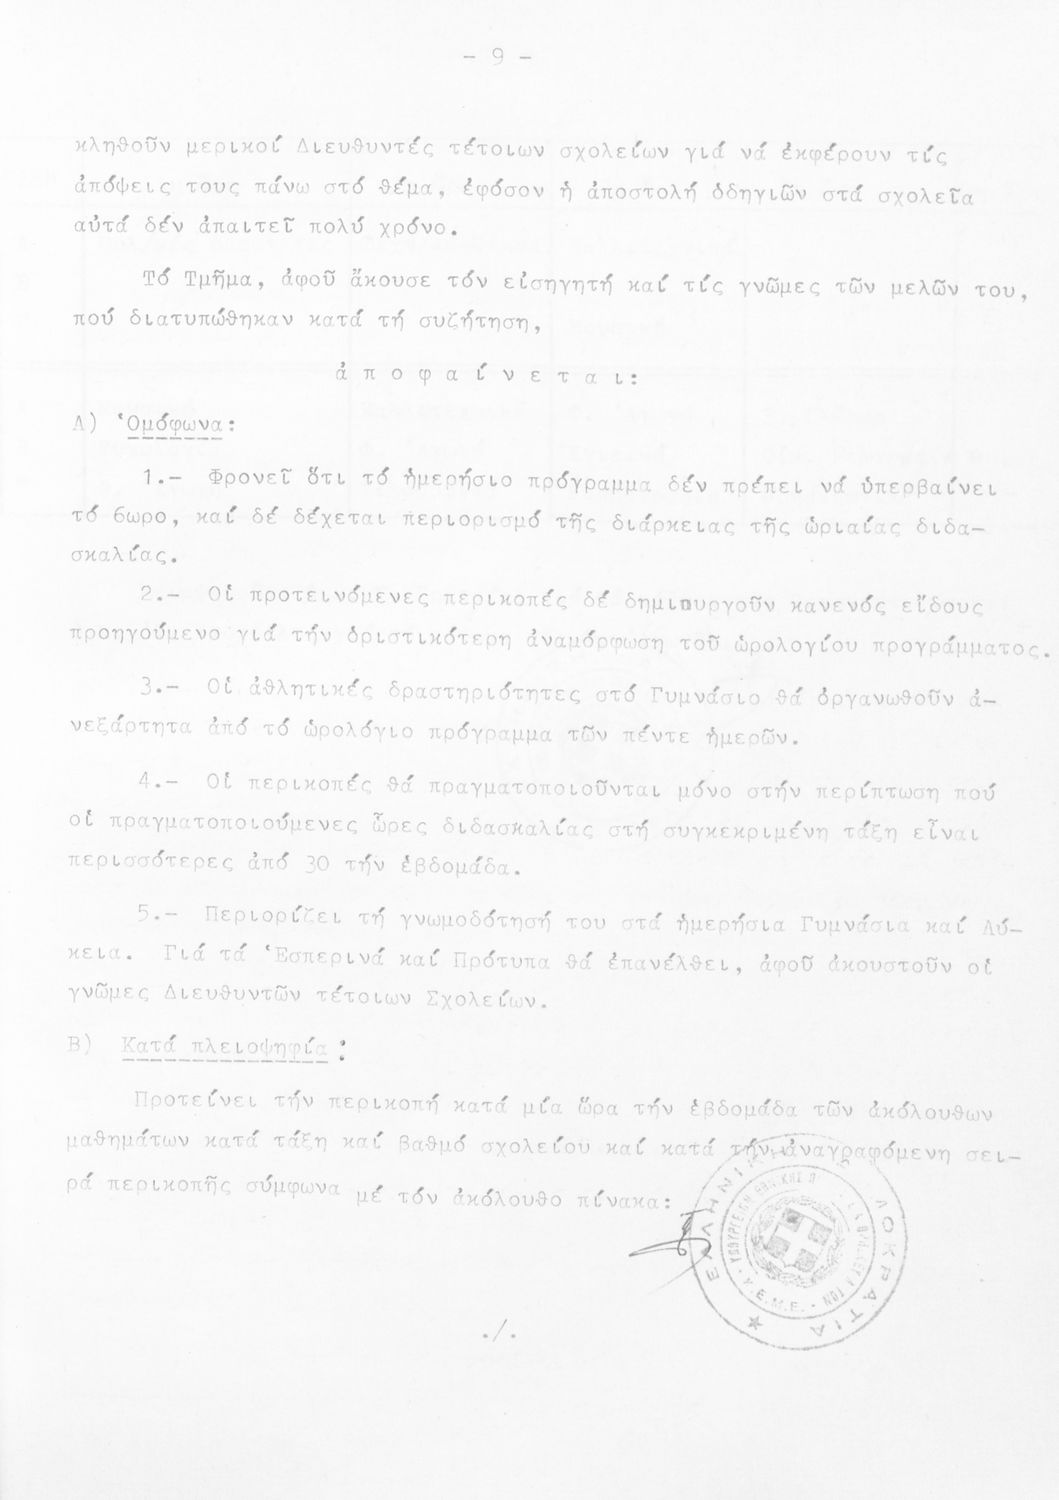 - 9 -
κληθοῦν μερικοί Διευθυντές τέτοιων σχολείων γιά νά ἐκφέρουν τίς
ἀπόψεις τους πάνω στό θέμα, ἐφόσον ἡ ἀποστολή ὁδηγιῶν στά σχολεῖα
αὐτά δέν ἀπαιτεῖ πολύ χρόνο.
Τό Τμῆμα, ἀφοῦ ἄκουσε τόν εἰσηγητή καί τίς γνῶμες τῶν μελῶν του,
πού διατυπώθηκαν κατά τή συζήτηση,
ἀ π ο φ α ί ν ε τ α ι :
Α) Ὁμόφωνα:
1.- Φρονεῖ ὅτι τό ἡμερήσιο πρόγραμμα δέν πρέπει νά ὑπερβαίνει
τό 6ωρο, καί δέ δέχεται περιορισμό τῆς διάρκειας τῆς ὡριαίας διδα-
σκαλίας.
2.- Οἱ προτεινόμενες περικοπές δέ δημιουργοῦν κανενός εἴδους
προηγούμενο γιά τήν ὁριστικότερη ἀναμόρφωση τοῦ ὡρολογίου προγράμματος.
3.- Οἱ ἀθλητικές δραστηριότητες στό Γυμνάσιο θά ὀργανωθοῦν ἀ-
νεξάρτητα ἀπό τό ὡρολόγιο πρόγραμμα τῶν πέντε ἡμερῶν.
4.- Οἱ περικοπές θά πραγματοποιοῦνται μόνο στήν περίπτωση πού
οἱ πραγματοποιούμενες ὧρες διδασκαλίας στή συγκεκριμένη τάξη εἶναι
περισσότερες ἀπό 30 τήν ἑβδομάδα.
5.- Περιορίζει τή γνωμοδότησή του στά ἡμερήσια Γυμνάσια καί Λύ-
κεια. Γιά τά Ἑσπερινά καί Πρότυπα θά ἐπανέλθει, ἀφοῦ ἀκουστοῦν οἱ
γνῶμες Διευθυντῶν τέτοιων Σχολείων.
Β) Κατά πλειοψηφία:
Προτείνει τήν περικοπή κατά μία ὥρα τήν ἑβδομάδα τῶν ἀκόλουθων
μαθημάτων κατά τάξη καί βαθμό σχολείου καί κατά τήν ἀναγραφόμενη σει-
ρά περικοπῆς σύμφωνα μέ τόν ἀκόλουθο πίνακα:
Κ.Ε.Μ.Ε.
./.